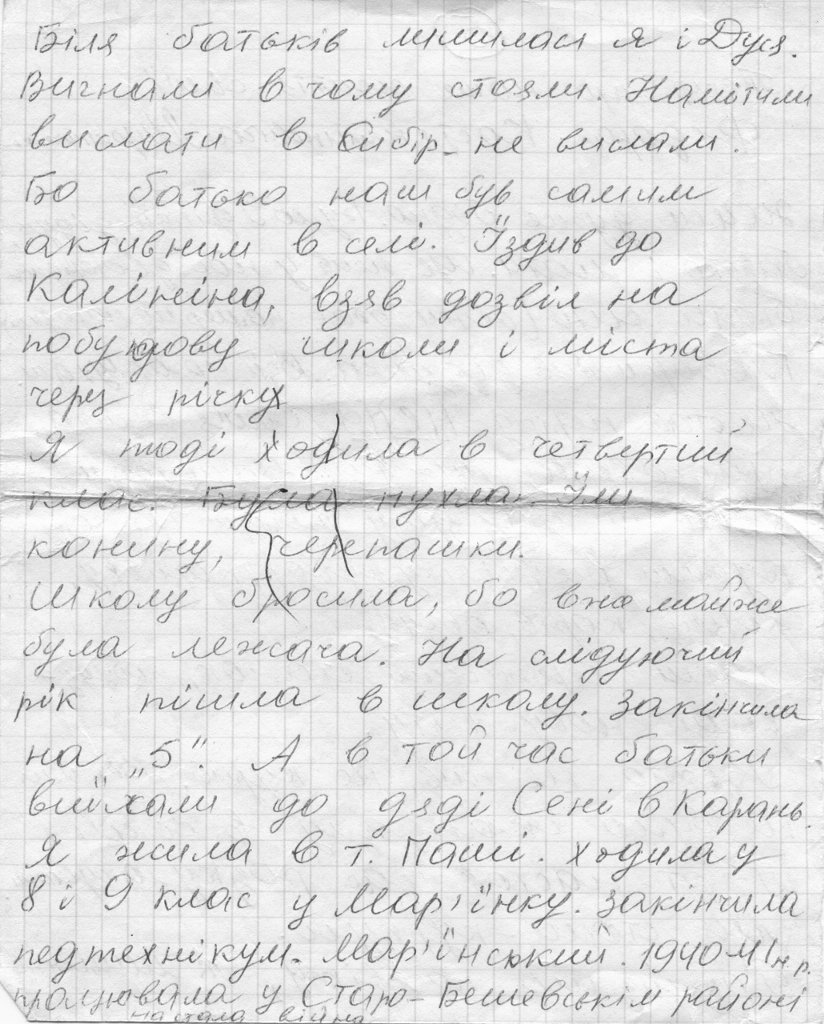 Біля батьків лишилася я і Дуся.
Вигнали в чому стояли. Намітили
вислати в Сибір - не вислали.
Бо батько наш був самим
активним в селі. Їздив до
Калініна, взяв дозвіл на
побудову школи і міста
через річку
Я тоді ходила в четвертий
клас. Була пухла. Їли
конину, черепашки.
Школу бросила, бо вже майже
була лежача. На слідуючий
рік пішла в школу. Закінчила
на "5". А в той час батьки
виїхали до дяді Сені в Карань.
Я жила в т. Паші. Ходила у
8 і 9 клас у Мар'їнку. Закінчила
педтехнікум. Мар'їнський. 1940
працювала у Старо-Бешевськім районі
настала війна